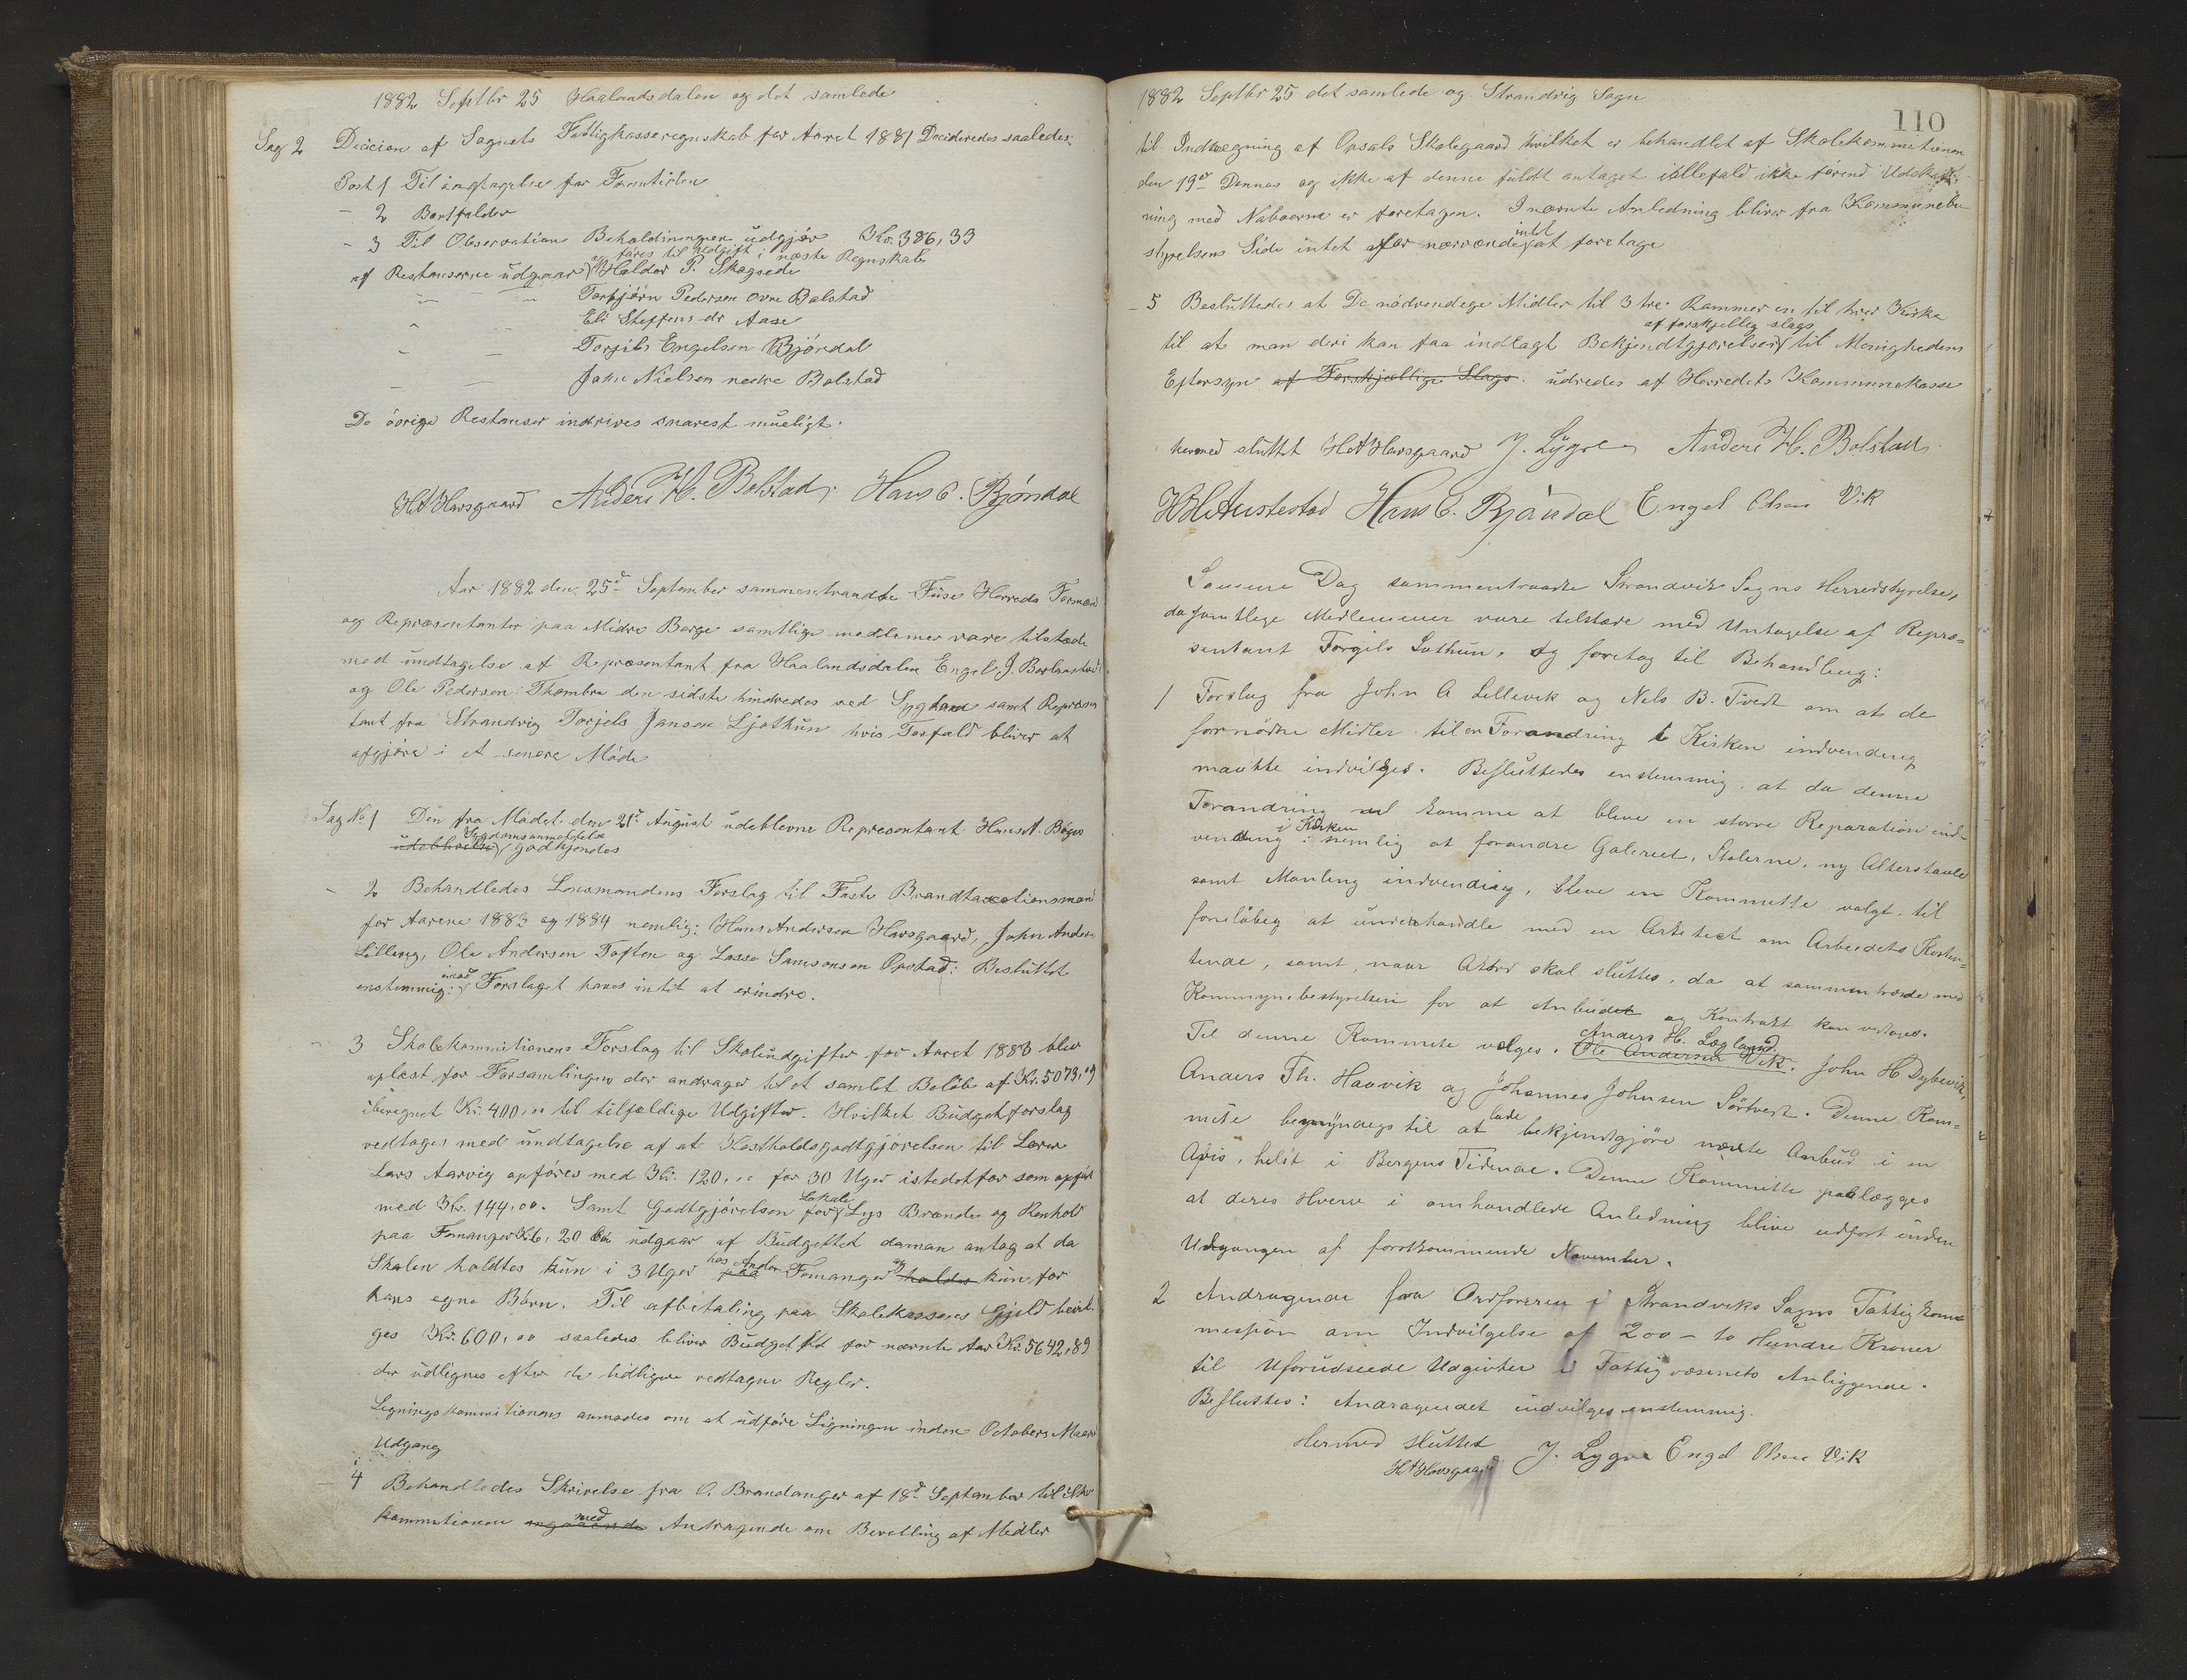 1882 Septbr 25 Haalandsdalen og det samlede
Sag 2 Decision af Sagnets Fattigkasseregnskab for Aaret 1881 Decideredes saaledes:
Post 1 Til iagtagelse for Fremtiden
- 2 Bortfalder
- 3 Til Observation Beholdningen udgjør Kr. 386,33
og føres til Udgift i næste Regnskab
af Restanserne udgaar Haldor P. Skagsede
" - " Torbjørn Pedersen øvre Bolstad
" - Eli Steffens dr Aase
" - Torgils Engelsen Bjørdal
- - Jakn Nielsen nedre Bolstad
De øvrige Restanser inddrives snarest mueligt.
HA Havsgaard Anders H. Bolstad, Hans E. Bjøndal
Aar 1882 den 25d September sammentraadte Fuse Herreds Formænd
og Repræsentanter paa Midre Berge samtlige medlemer vare tilstæde
med undtagelse af Repræsentant fra Haalandsdalen Engel J. Berlaastad
og Ole Pedersen Thombre den sidste hindredes ved Sygdom samt Repræsen
tant fra Strandvig Torjels Jansen Ljothun hvis Forfald bliver at
afgjøre i et senere Møde
Sag No 1 Den fra Mødet den 21d August udeblevne Representant Hans A. Bøges
Sygdomsanmeldelse
udeblivelse godkjendes
- 2 Behandledes Lensmandens Forslag til Faste Brandtaxationsmænd
for Aarene 1883 og 1884 nemlig: Hans Andersen Havsgaard, John Anders
Lillevig, Ole Andersen Toften og Lasse Samsonsen Opstad: Besluttet
imod
enstemmig: Forslaget haves intet at erindre.
- 3 Skolekommitionens Forslag til Skoleudgifter for Aaret 1883 blev
oplæst for Forsamlingen der andrager til et samlet Beløb af Kr. 5073,19
iberegnet Kr. 400,00 til tilfældige Udgifter. Hvilket Budgetforslag
vedtages med undtagelse af at Kostholdsgodtgjørelsen til Lærer
Lars Aarvig opføres med Kr. 120,00 for 30 Uger istedetfor som opført
med Kr. 144,00. Samt Godtgjørelsen for Lys Brænde og Renhold
Lokale
paa Femanger Kr 6, 20 Øre udgaar af Budgettet daman antog at da
Skolen holdtes kun i 3 Uger paa Femanger holdes kun for
hos Anders og
hans egne Børn. Til afbetaling paa Skolekassens Gjeld bevil
ges Kr. 600,00 saaledes bliver Budgettet for nævnte Aar Kr. 5642,89
der udlignes efter de tidligere vedtagne Regler.
Ligningskommitionens anmodes om at udføre Ligningen inden Octobers Maaneds
Udgang
- 4 Behandledes Skrivelse fra O. Brandanger af 18d September til Skole
med
kommitionen angaaende Andragende om Bevelling af Midler
1882 Septbr 25 det samlede og Strandvig Sagn
110
til Indhegning af Opsals Skolegaard hvilket er behandlet af Skolekommitionen
den 19de Dennes og ikke af denne fuldt antaget iallefald ikke førend Udskift-
ning med Naboerne er foretagen. I nævnte Anledning bliver fra Kommunebe
styrelsens Side intet for nærværende at foretage
intet
- 5 Besluttedes at De nødvendige Midler til 3 tre Rammer en til hver Kirke
af forskjellig slags
til at man deri kan faa indlagt Bekjendtgjørelser til Menighedens
Eftersyn af Forskjellige Slags. udredes af Herredets Kommunekasse
hermed sluttet HA Havsgaard J. Lygre Anders H. Bolstad
HH Austestad Hans E. Bjøndal Engel Olsen Vik
Samme Dag sammentraadte Strandvik Sagns Herredstyrelse,
da samtlege Medlemmer vare telstæde med Untagelse af Repræ-
sentant Torgils Lothun, og foretog til Behandling:
1 Forslag fra John A Lillevik og Nels B. Tvedt om at de
fornødne Midler til en Forandring i Kirken indvendeg
maatte indvilges. Besluttedes enstemmig, at da denne
Forandring vel komme at bleve en større Reparation ind-
i Kirken
vendeng: nemlig at forandre Galeriet, Stolerne, ny Altertavle
samt Maaling indvendieg, bleve en Kommitte valgt, til
foreløbeg at underhandle med en Arkitect om Arbeidets Kosten-
tende, samt, naar Akord skal sluttes, da at sammentræde med
Kommunebestyrelsen for at Anbudet og Kontrakt kan vedtages.
Anders H. Løgland
Til denne Kommite vælges. Ole Andersen Vik, John H Dybevik,
Anders Th. Haavik og Johannes Johnsen Sørtvedt. Denne Kom-
lade
mite bemyndeges til at bekjendtgjöre nævte Anbud i en
Avis, helst i Bergens Tidende. Denne Kommitte paalægges
at deres Hverv i omhandlede Anledning blive udført inden
Udgangen af førstkommende November.
2 Andragende fra Ordføreren i Strandviks Sagns Fattigkom-
mission om Indvilgelse af 200 - to Hundre Kroner
til Uforudseede Udgivter i Fattigvæsenets Anliggende.
Besluttes: Andragendet indvilges enstemmig.
Hermed sluttet
HA Havsgaard J. Lygre Engel Olsen Vik